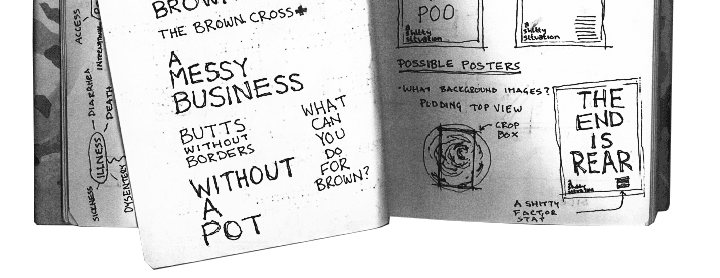 ACCESS
DIARRHEA
DEATH
ILLNESS
SICKNESS
DYSENTERY
THE BROWN CROSS
A
MESSY
BUSINESS
BUTTS
WITHOUT
BORDERS
WHAT
CAN
YOU
DO
FOR
BROWN?
WITHOUT
A
POT
POO
A
shitty
situation
A
shitty
situation
POSSIBLE POSTERS
- WHAT BACKGROUND IMAGES?
PUDDING TOP VIEW
CROP
BOX
THE
END
IS
REAR
A SHITTY
FACTOR
STAT